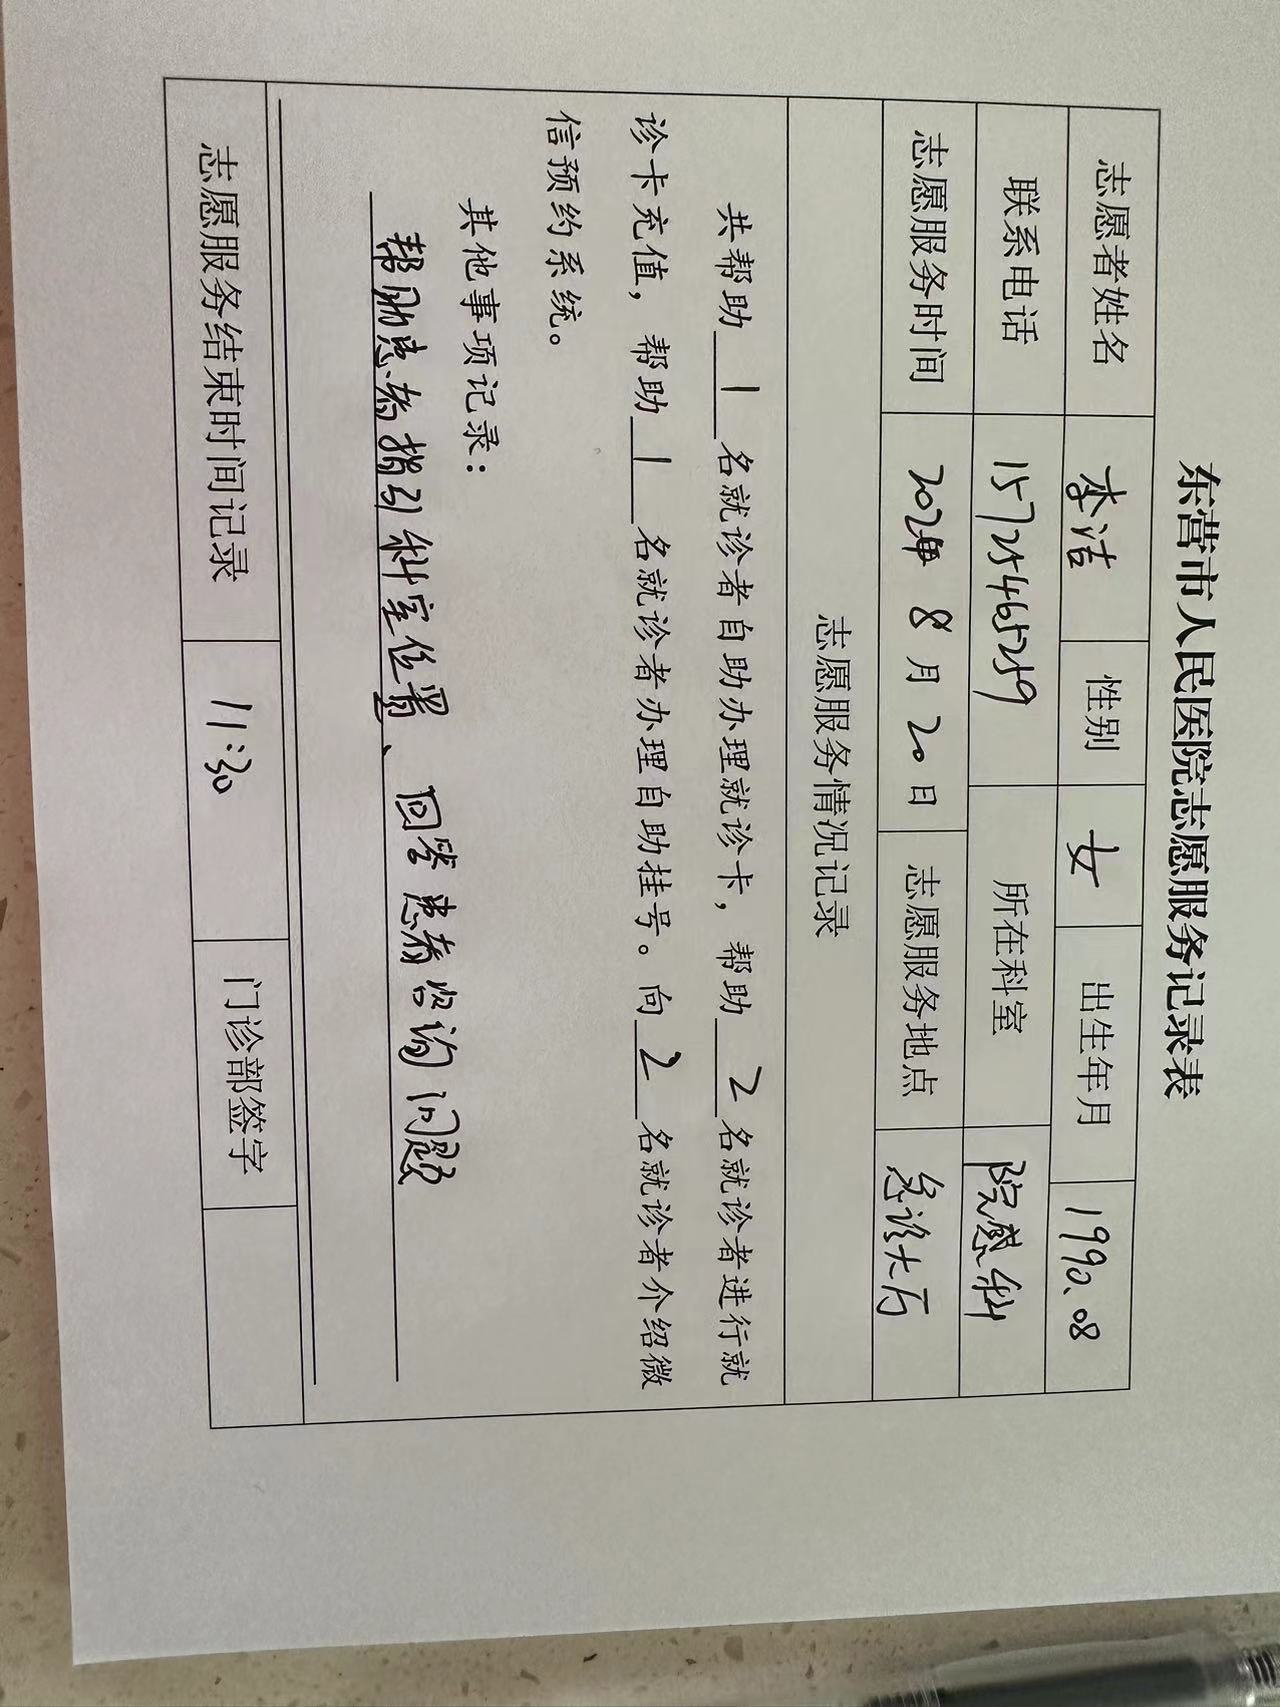 东营市人民医院志愿服务记录表
志愿者姓名 李洁 性别 女 出生年月 1990.08
联系电话 15725465259 所在科室 院感科
志愿服务时间 2024年 8月 20日 志愿服务地点 急诊大厅
志愿服务情况记录
共帮助 1 名就诊者自助办理就诊卡，帮助 2 名就诊者进行就
诊卡充值，帮助 1 名就诊者办理自助挂号。向 2 名就诊者介绍微
信预约系统。
其他事项记录：
帮助患者指引科室位置、回答患者咨询问题
志愿服务结束时间记录 11:30 门诊部签字